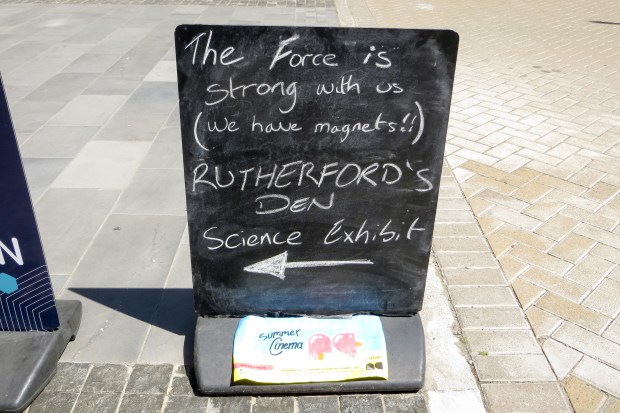 The Force is
strong with us
(we have magnets!!)
RUTHERFORD'S
DEN
Science Exhibit
Summer
Cinema
N